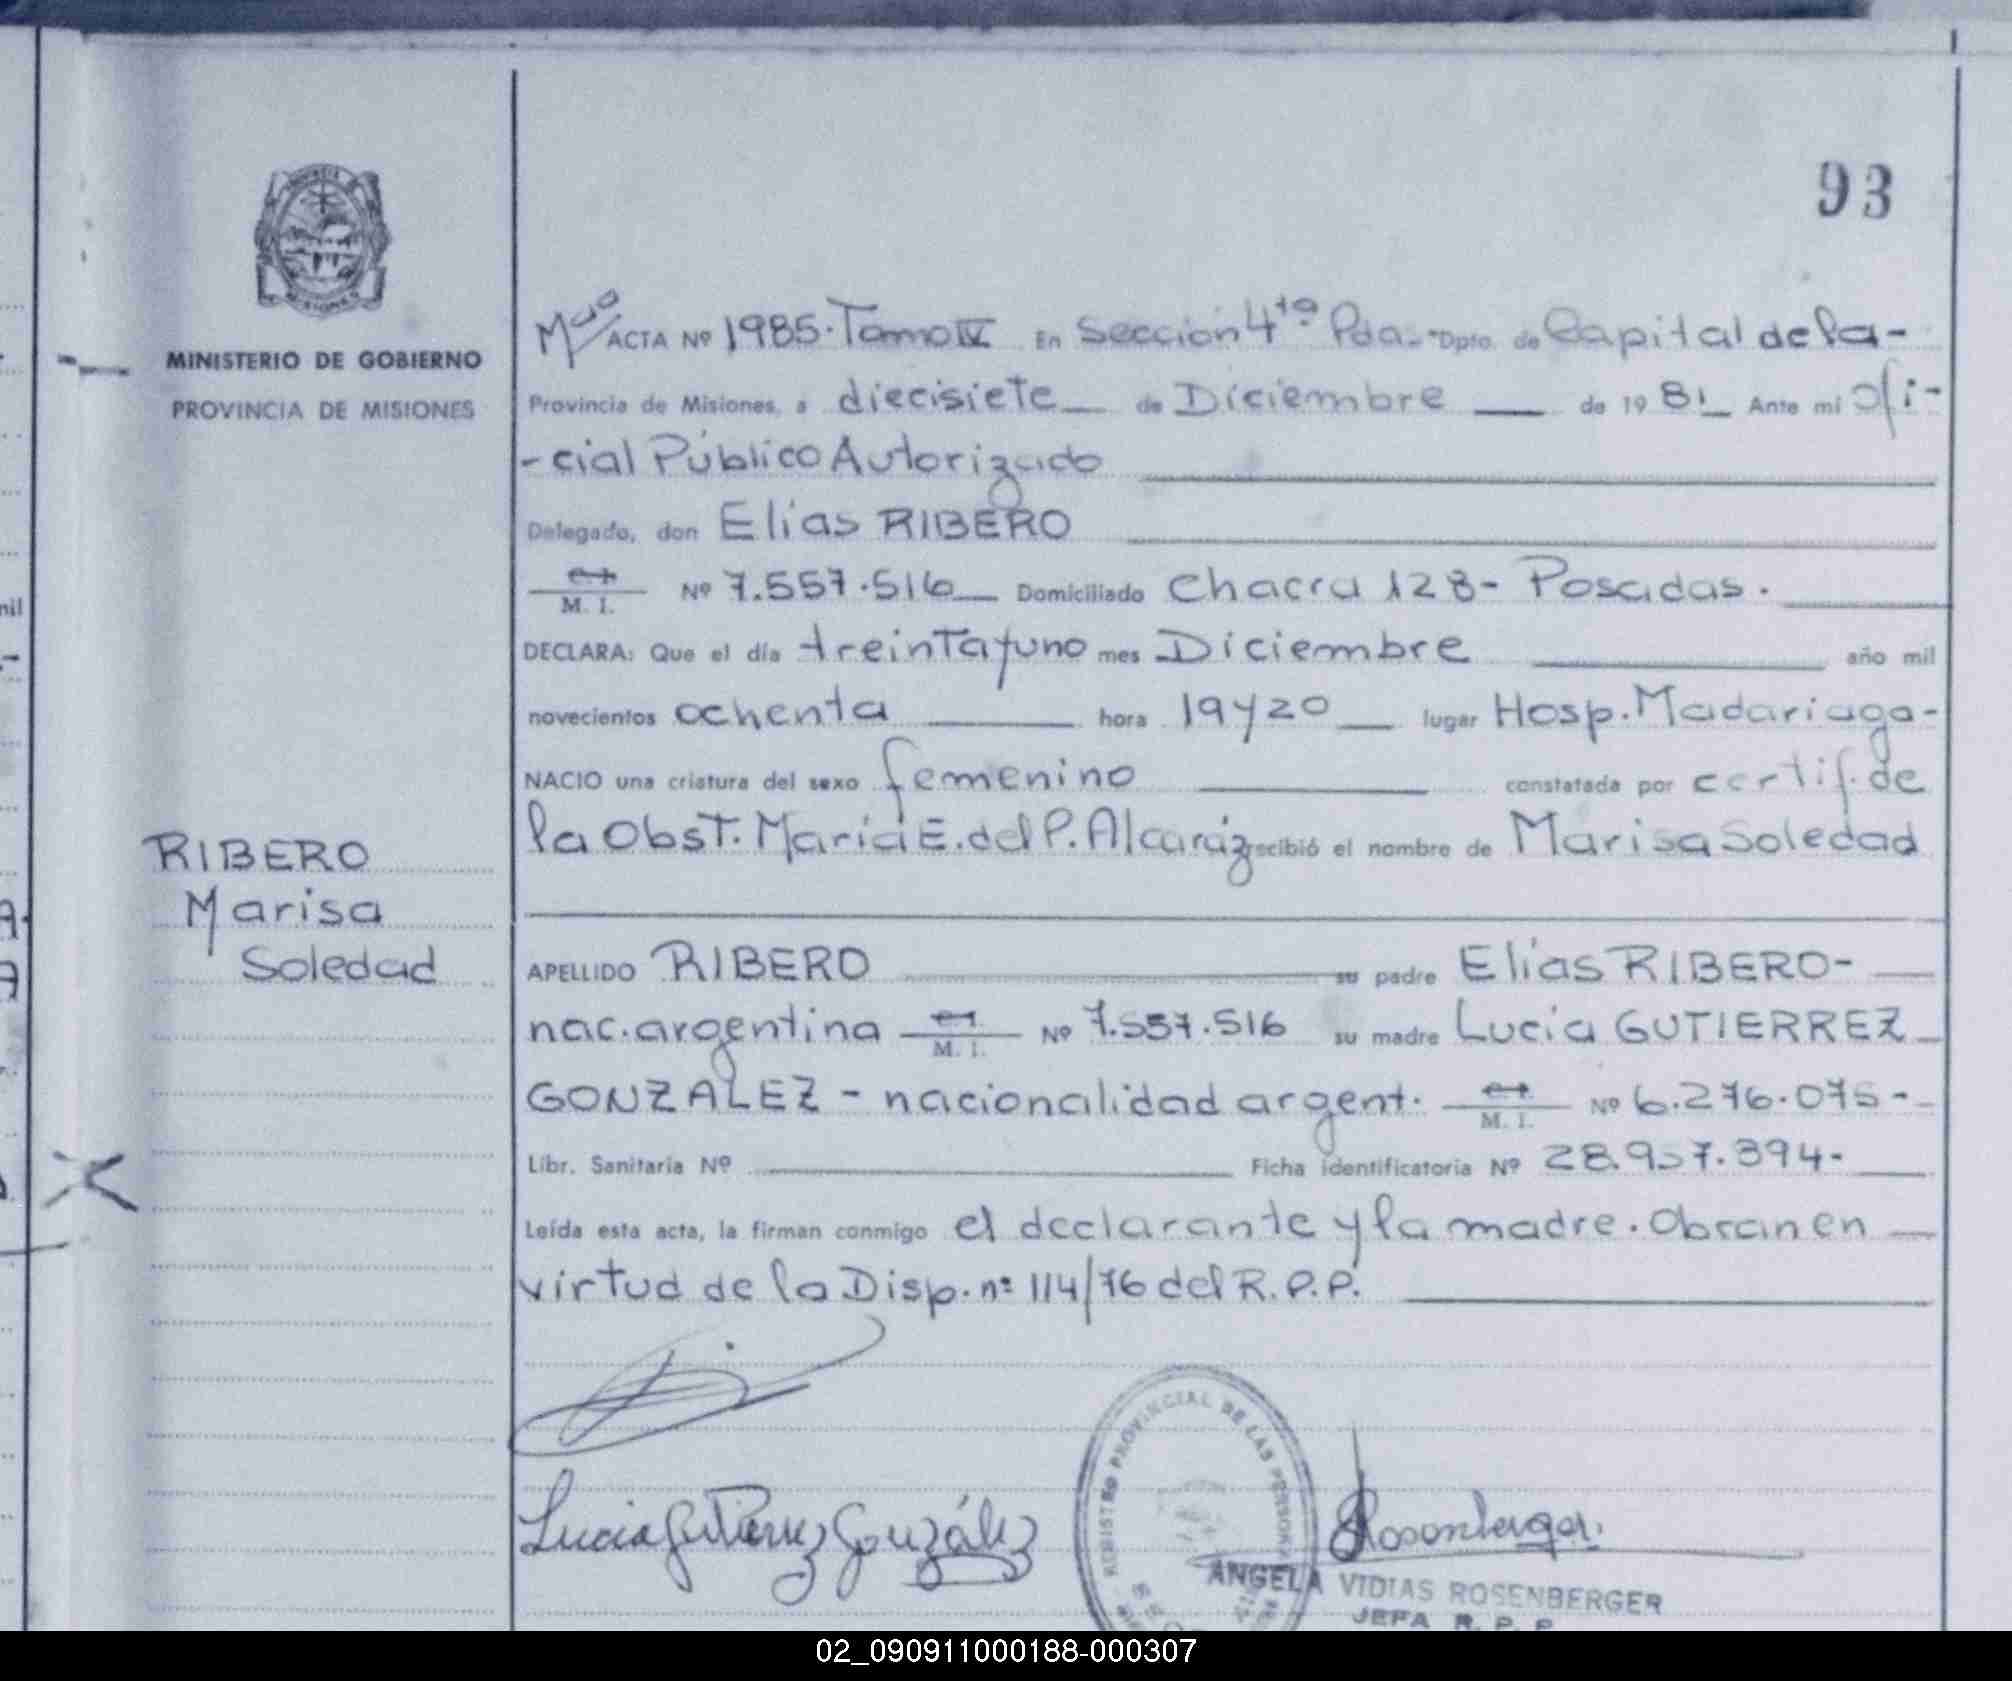 93
MINISTERIO DE GOBIERNO
PROVINCIA DE MISIONES
RIBERO
Marisa
Soledad
ACTA Nº 1985. Tomo IV En Sección 4ta Pda. Dpto. de Capital de la-
Provincia de Misiones, a diecisiete de Diciembre de 1981 Ante mi Ofi-
-cial Público Autorizado
Delegado, don Elías RIBERO
M. I. Nº 7.557.516 Domiciliado Chacra 128- Posadas.
DECLARA: Que el día treinta y uno mes Diciembre año mil
novecientos ochenta hora 19 y 20 lugar Hosp. Madariaga-
NACIO una criatura del sexo femenino constatada por certif. de
la Obst. María E. del P. Alcaráz recibió el nombre de Marisa Soledad
APELLIDO RIBERO su padre Elías RIBERO-
nac. argentina M. I. Nº 7.557.516 su madre Lucía GUTIERREZ
GONZALEZ - nacionalidad argent. M. I. Nº 6.276.075-
Libr. Sanitaria Nº Ficha identificatoria Nº 28.957.394-
Leída esta acta, la firman conmigo el declarante y la madre. Obran en
virtud de la Disp. nº 114/76 del R.P.P.
Lucia Gutierrez González
Rosenberger
REGISTRO PROVINCIAL DE LAS PERSONAS
ANGELA VIDIAS ROSENBERGER
JEFA R. P. P.
02_090911000188-000307